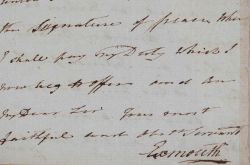 the Signature of peace when
I shall pay my Debt which I
now beg to offer and am
My Dear Sir Your most
faithful and obt Servant
Exmouth